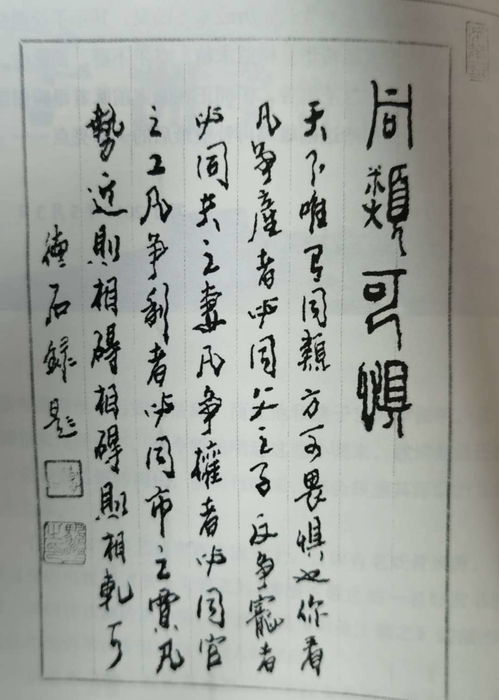 同類可惧
天下唯有同類方可畏惧也你看
凡爭產者必同父之子凡爭寵者
必同夫之妻凡爭權者必同官
之工凡爭利者必同市之賈凡
勢近則相碍相碍則相軋可
德石録題